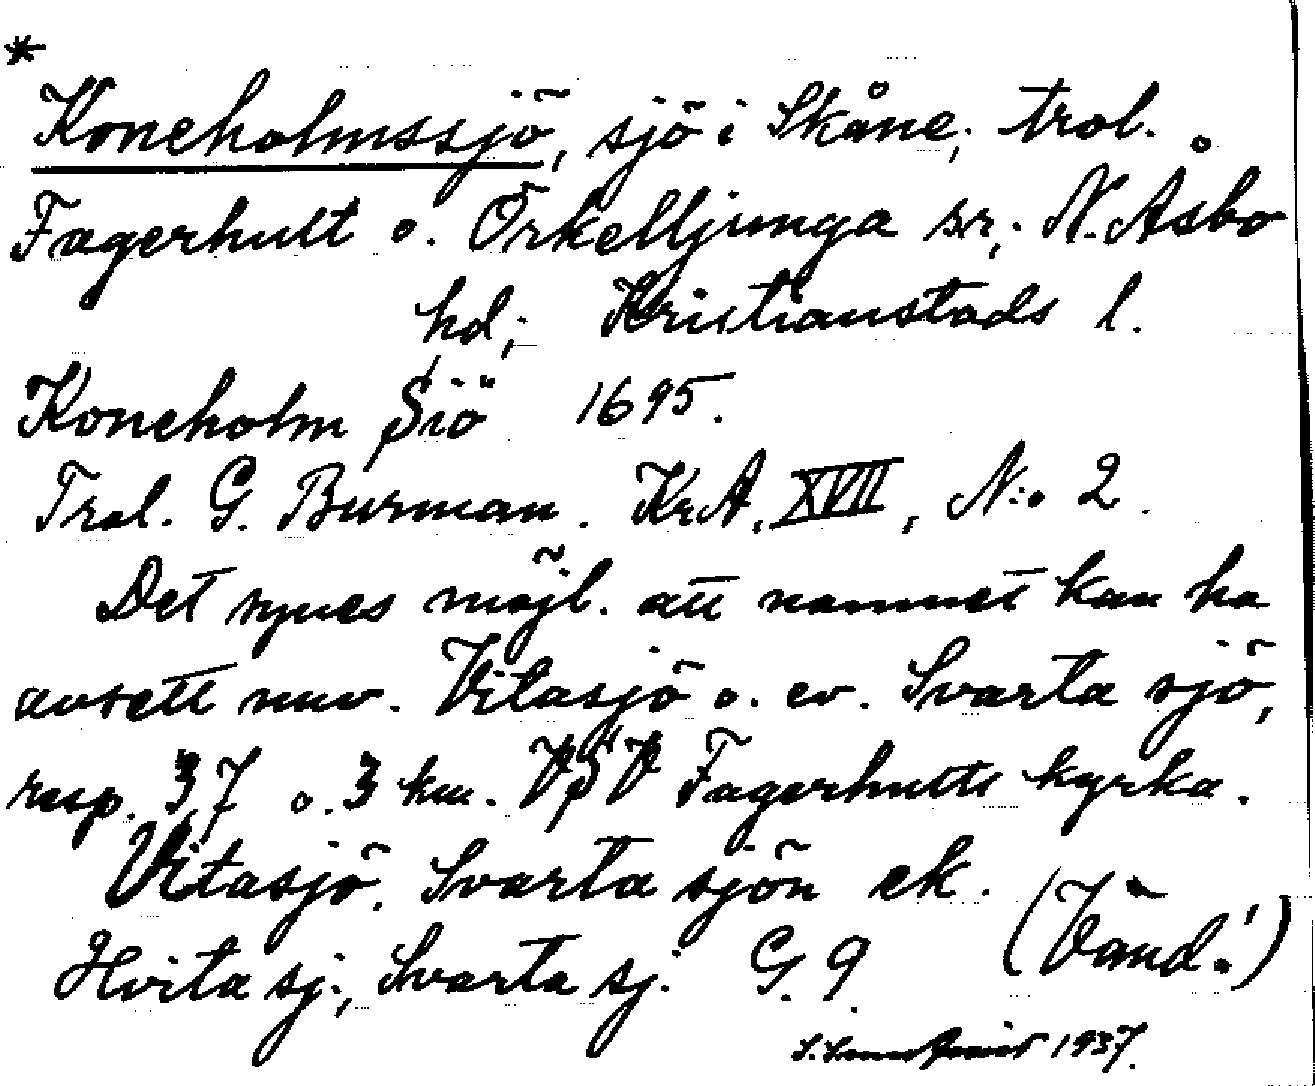 *
Koneholmssjö, sjö i Skåne; trol.
Fagerhult o. Örkelljunga sr; N. Åsbo
hd; Kristianstads l.
Koneholm Siö 1695.
Trol. G. Burman. KrA, XVII, N:o 2.
Det synes möjl. att namnet kan ha
avsett nuv. Vitasjö o. ev. Svarta sjö,
resp. 3,7 o. 3 km. VSV Fagerhults kyrka.
Vitasjö, Svarta sjön ek.
Hvita sj., Svarta sj. G. 9. (Vänd!)
1937.